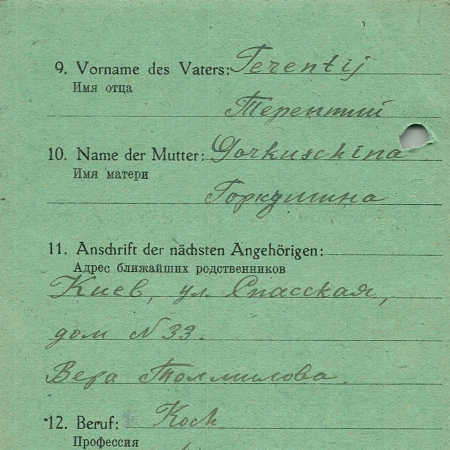 9. Vorname des Vaters: Terentij
Имя отца
Терентий
10. Name der Mutter: Gorkuschina
Имя матери
Горкушина
11. Anschrift der nächsten Angehörigen:
Адрес ближайших родственников
Киев, ул. Спасская,
дом N 33.
Вера Толмилова.
12. Beruf: Koch
Профессия